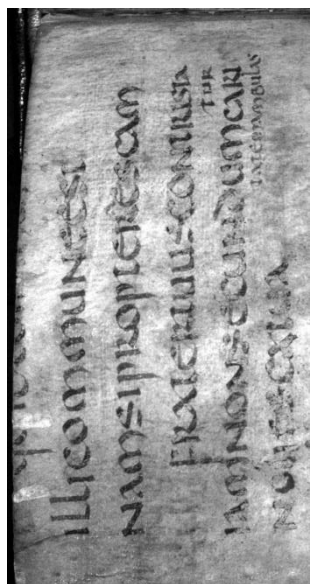 ILLICOMMUNEEST
NAMSIPROPTERESCAM
FRATERTUUSCONTRISTA
TUR
IAMNONSECUNDUMCARI
TATEMAMBULAS
NOLIESCATUA